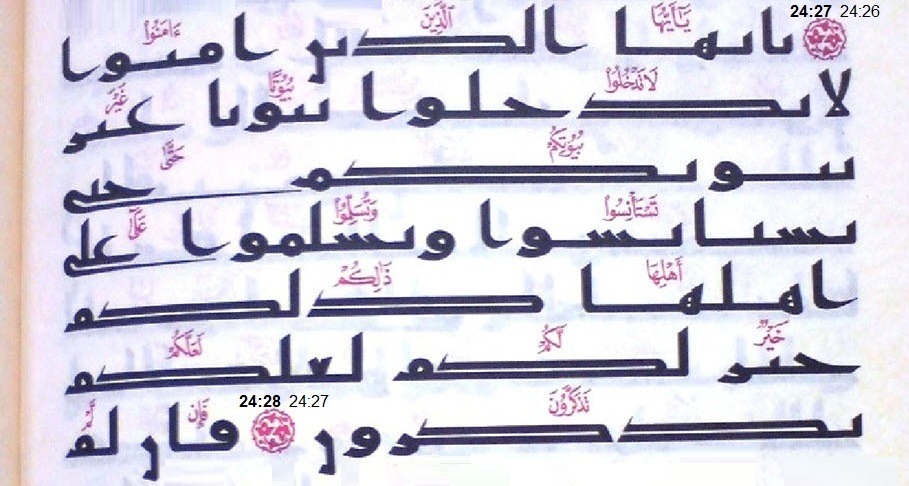 24:27 24:26
يَٰٓأَيُّهَا الَّذِينَ ءَامَنُوا
يايها الذين امنوا
لَا تَدْخُلُوا بُيُوتًا غَيْرَ
لا تدخلوا بيوتا غير
بُيُوتِكُمْ حَتَّىٰ
بيوتكم حتى
تَسْتَأْنِسُوا وَتُسَلِّمُوا عَلَىٰٓ
تستانسوا وتسلموا على
أَهْلِهَا ذَٰلِكُمْ
اهلها ذلكم
خَيْرٌ لَّكُمْ لَعَلَّكُمْ
خير لكم لعلكم
تَذَكَّرُونَ 24:28 24:27 فَإِن لَّمْ
تذكرون فان لم